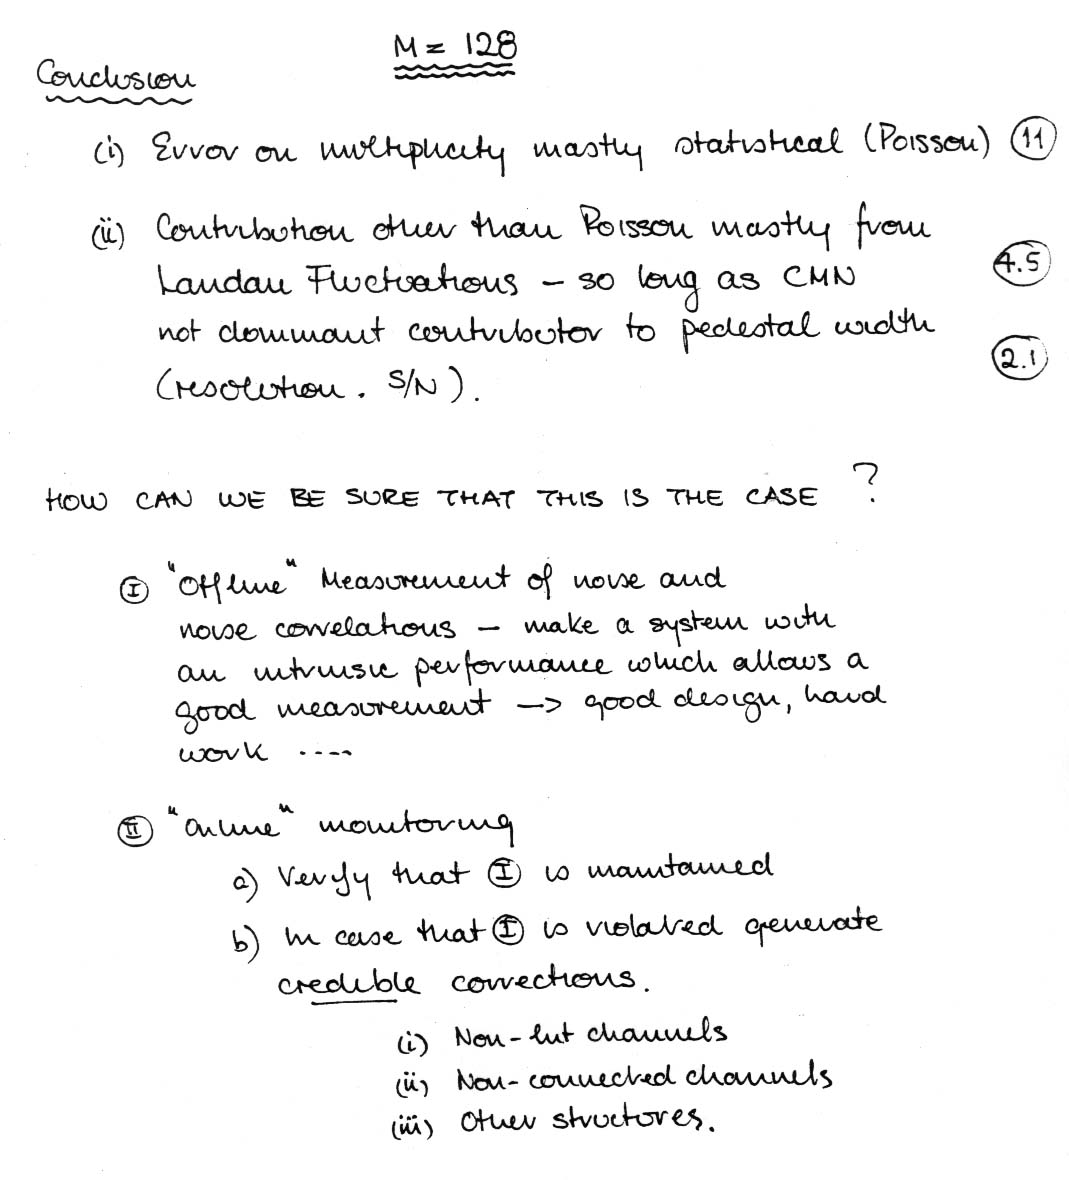 M = 128
Conclusion
(i) Error on multiplicity mostly statistical (Poisson) 11
(ii) Contribution other than Poisson mostly from
Landau Fluctuations – so long as CMN 4.5
not dominant contributor to pedestal width
(resolution. S/N). 2.1
HOW CAN WE BE SURE THAT THIS IS THE CASE ?
I "Offline" Measurement of noise and
noise correlations – make a system with
an intrinsic performance which allows a
good measurement –> good design, hard
work ....
II "Online" monitoring
a) Verify that I is maintained
b) In case that I is violated generate
credible corrections.
(i) Non-hit channels
(ii) Non-connected channels
(iii) Other structures.